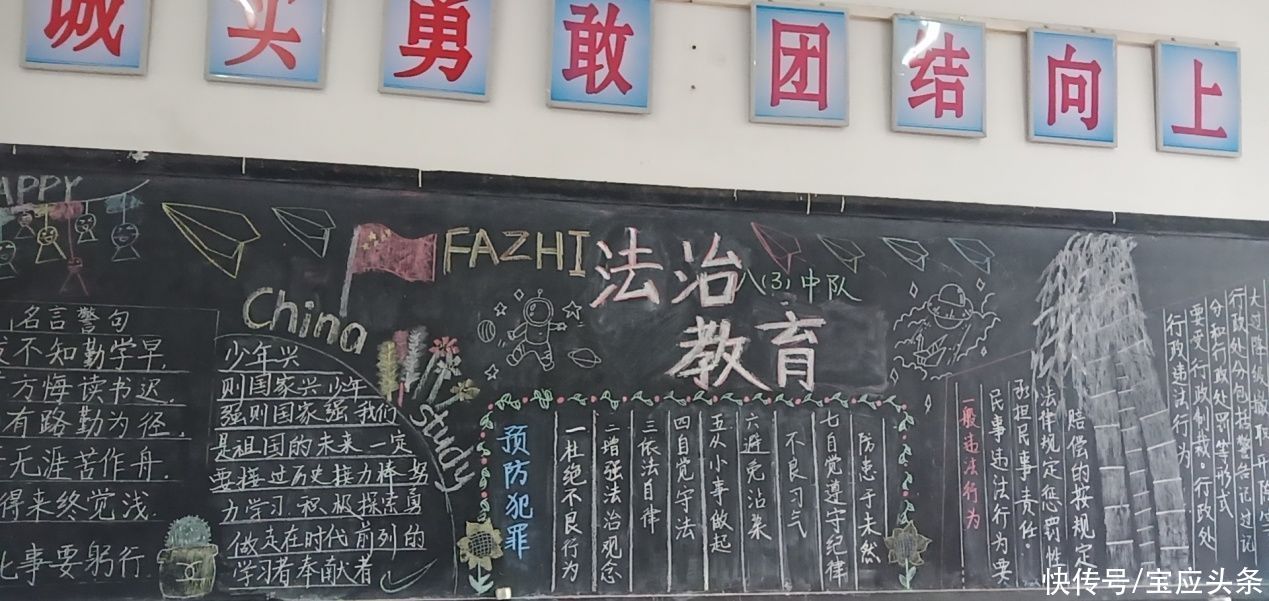 诚实勇敢团结向上
APPY
名言警句
不知勤学早,
方悔读书迟.
有路勤为径,
无涯苦作舟.
得来终觉浅
事要躬行
China
Study
少年兴
则国家兴,少年
强则国家强,我们
是祖国的未来.一定
要接过历史接力棒.努
力学习.积极探索
做走在时代前列的
学习者奉献者
FAZHI
法治
教育
八(3)中队
预防犯罪
一杜绝不良行为
二增强法治观念
三依法自律
四自觉守法
五从小事做起
六避免沾染
不良习气
七自觉遵守纪律
防患于未然
一般违法行为
民事违法行为要
承担民事责任。
法律规定惩罚性
赔偿的按规定
行政违法行为
要受行政制裁。行政处
分和行政处罚等形式
行政处分包括警告记过记
大过降级撤职开除
快传号/宝应头条